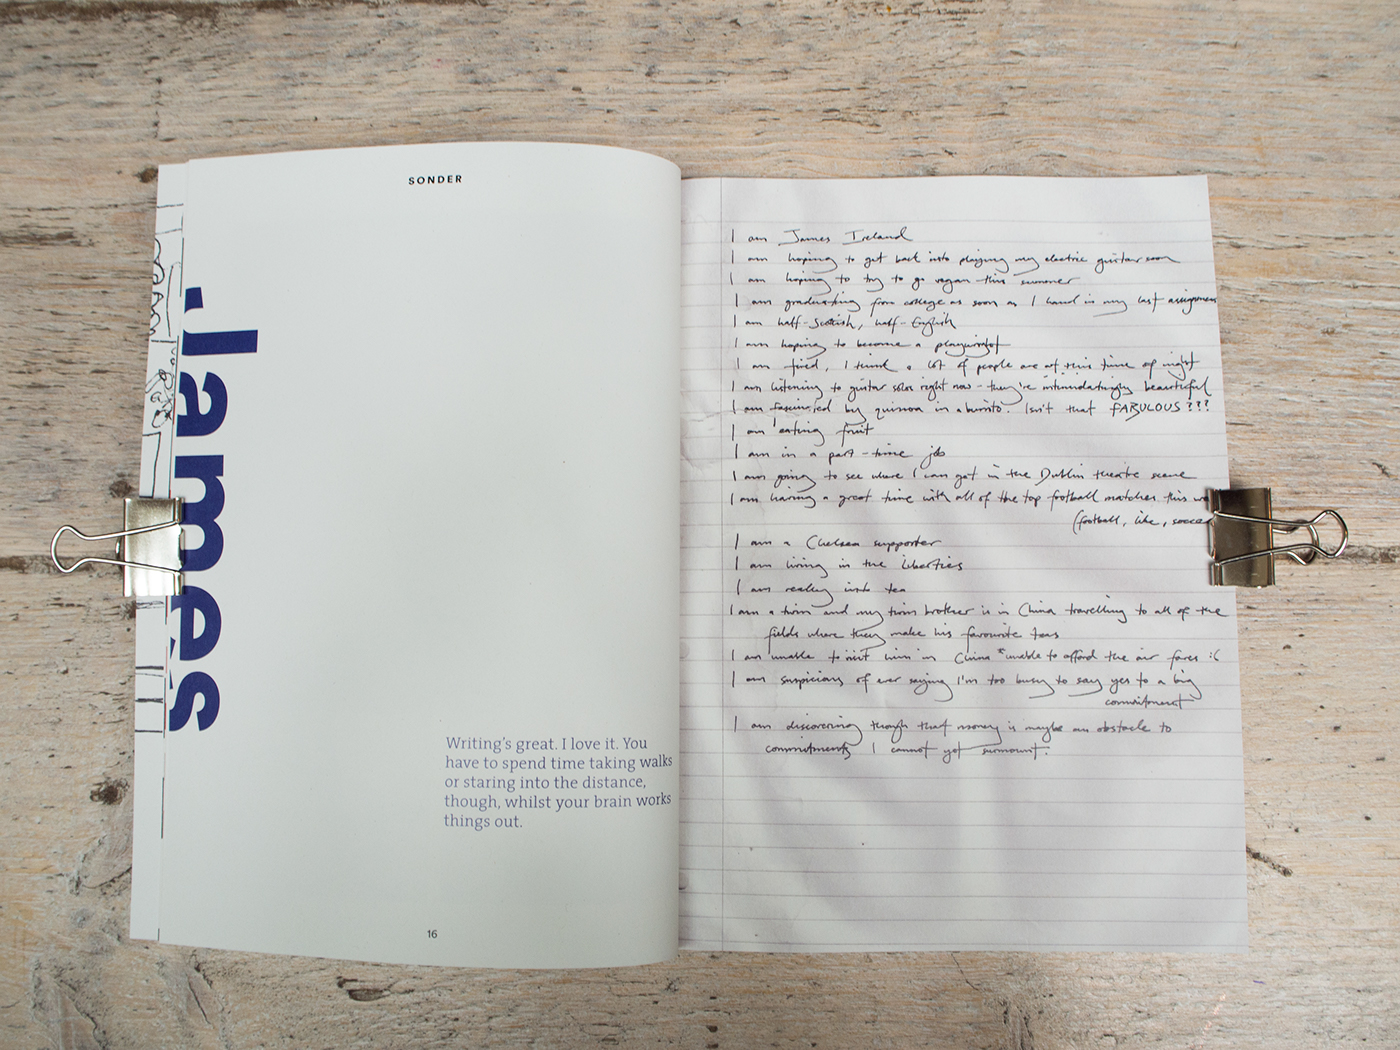 SONDER
James
Writing's great. I love it. You
have to spend time taking walks
or staring into the distance,
though, whilst your brain works
things out.
16
I am James Ireland
I am hoping to get back into playing my electric guitar soon
I am hoping to try to go vegan this summer
I am graduating from college as soon as I hand in my last assignmen
I am half-Scottish, half-English
I am hoping to become a playwright
I am tired, I think a lot of people are at this time of night
I am listening to guitar solos right now - they're intimidatingly beautiful
I am fascinated by quinoa in a burrito. Isn't that FABULOUS???
I am eating fruit
I am in a part-time job
I am going to see where I can get in the Dublin theatre scene
I am having a great time with all of the top football matches this
(football, like, soccer
I am a Chelsea supporter
I am living in the Liberties
I am really into tea
I am a twin and my twin brother is in China travelling to all of the
fields where they make his favourite teas
I am unable to visit him in China *unable to afford the air fares :(
I am suspicious of ever saying I'm too busy to say yes to a big
commitment
I am discovering though that money is maybe an obstacle to
commitments I cannot yet surmount.